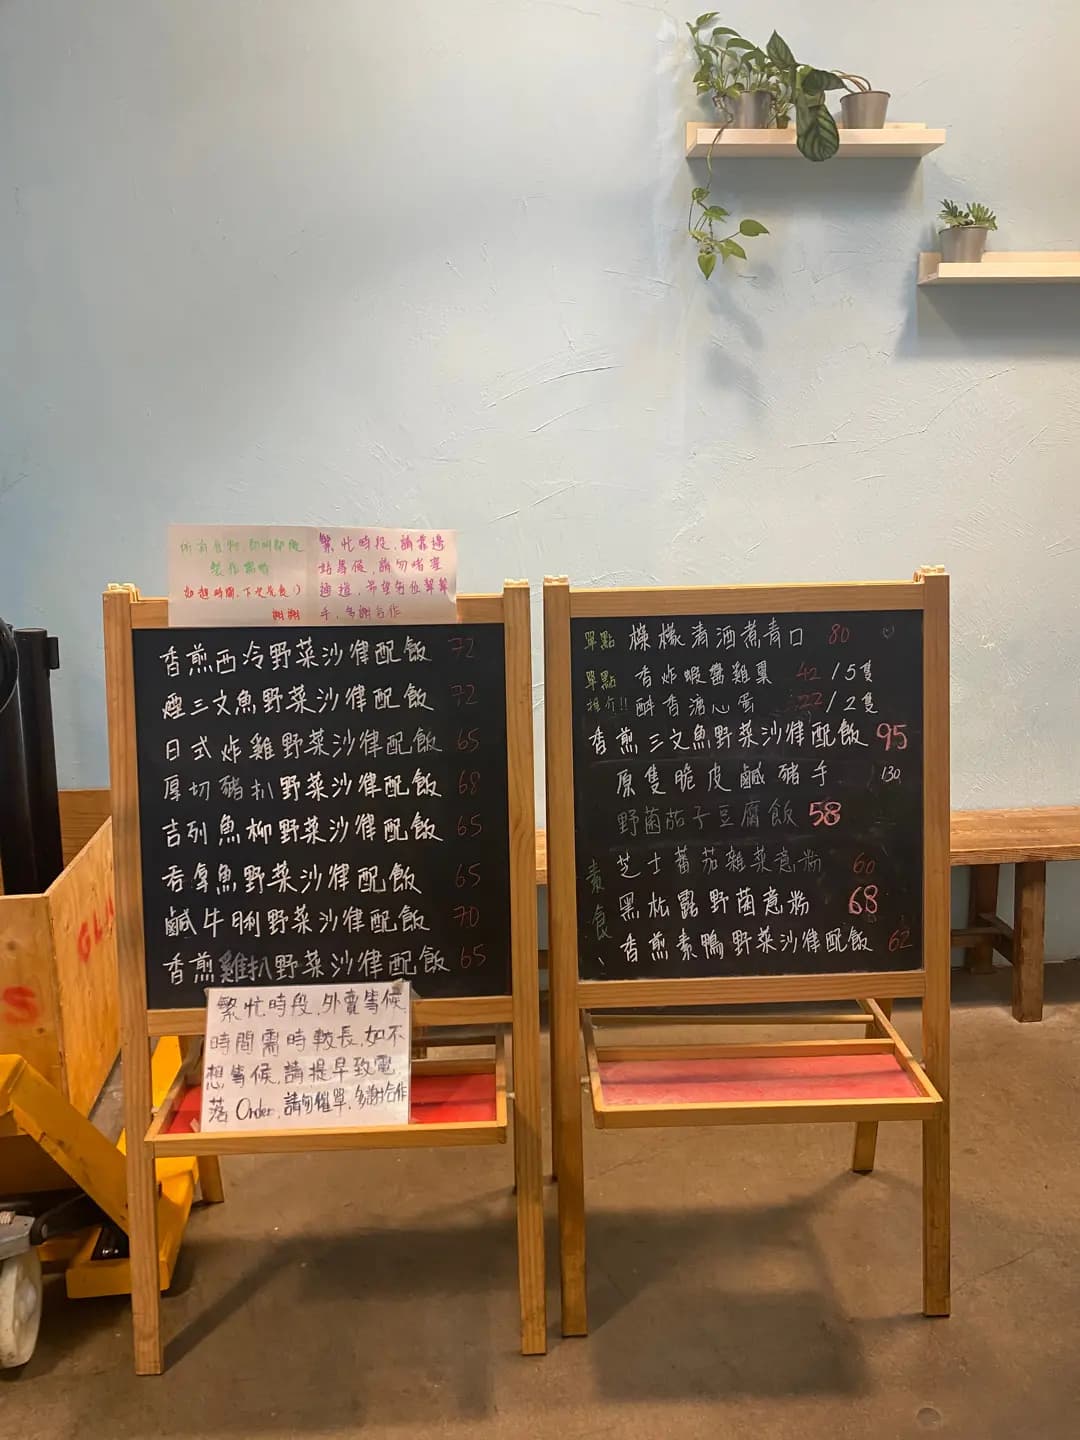 所有食物，即叫即做
製作需時
如趕時間，下次先食 :)
謝謝
繁忙時段，請靠邊
站等候，請勿堵塞
通道，希望各位幫幫
手，多謝合作
香煎西冷野菜沙律配飯 72
煙三文魚野菜沙律配飯 72
日式炸雞野菜沙律配飯 65
厚切豬扒野菜沙律配飯 68
吉列魚柳野菜沙律配飯 65
吞拿魚野菜沙律配飯 65
鹹牛脷野菜沙律配飯 70
香煎雞扒野菜沙律配飯 65
繁忙時段，外賣等候
時間需時較長，如不
想等候，請提早致電
落 Order，請勿催單，多謝合作
單點 檸檬清酒煮青口 80
單點 香炸蝦醬雞翼 42 / 5隻
推介!! 酥香溏心蛋 22 / 2隻
香煎三文魚野菜沙律配飯 95
原隻脆皮鹹豬手 130
野菌茄子豆腐飯 58
素食、
芝士蕃茄雜菜意粉 60
黑松露野菌意粉 68
香煎素鴨野菜沙律配飯 62
GL
S